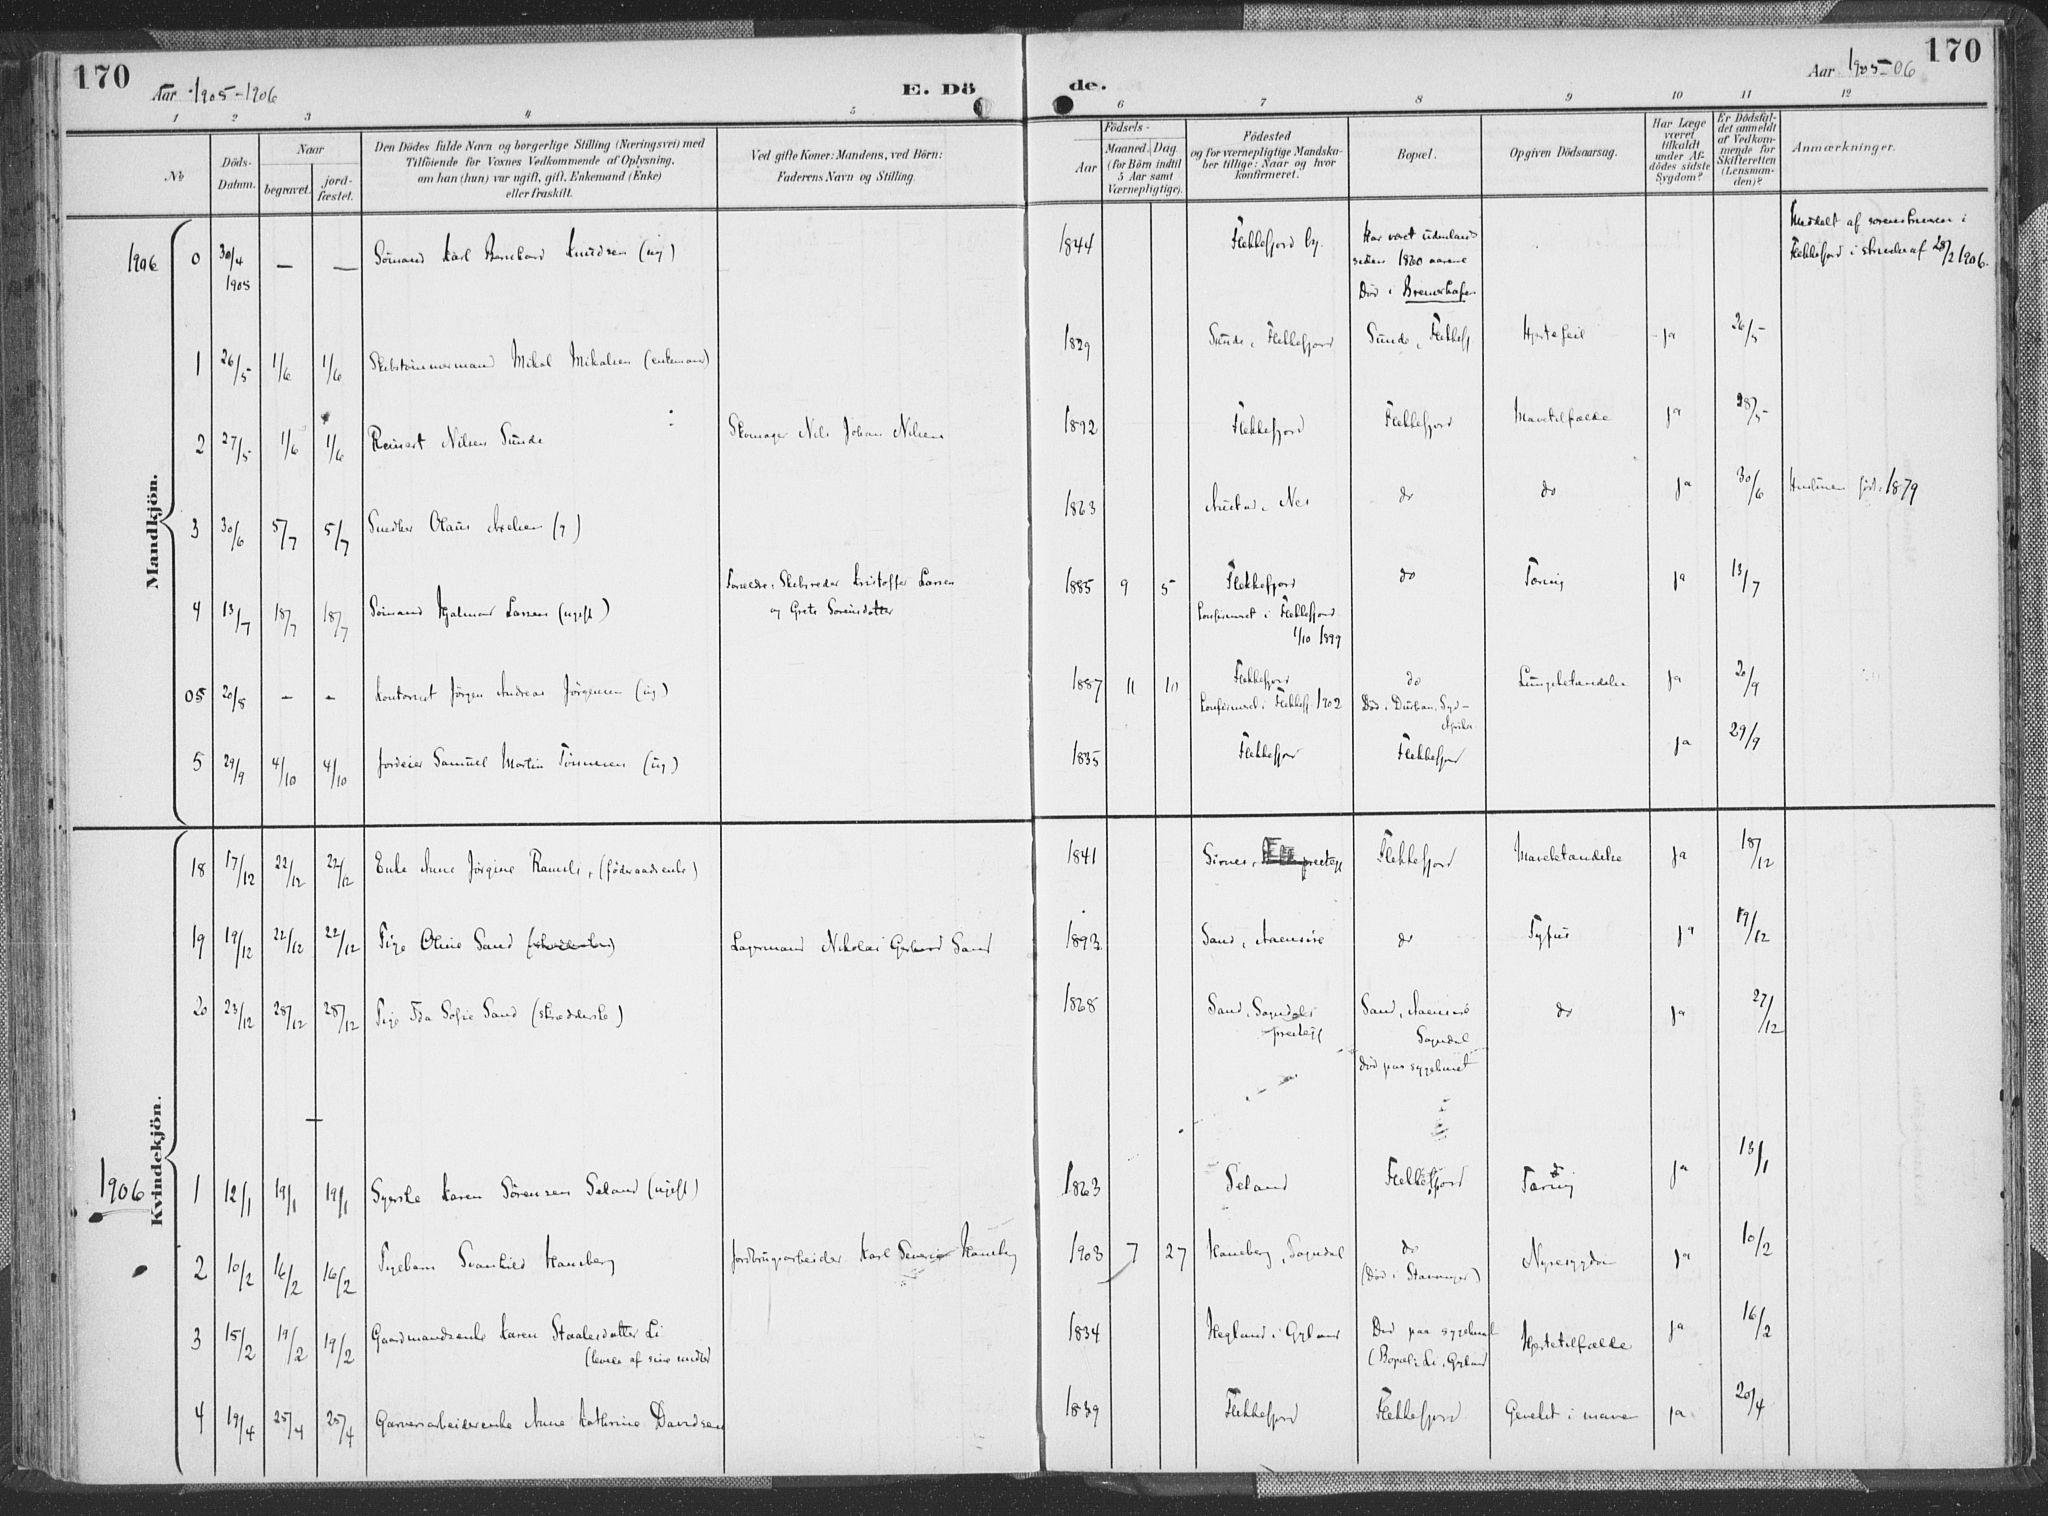 170
Aar 1905-1906
E. Döde.
Aar 1905-06
170
1 2 3 4 5 6 7 8 9 10 11 12
No
Döds-Datum.
Naar
begravet.
jord-fæstet.
Den Dödes fulde Navn og borgerlige Stilling (Næringsvei) med
Tilföiende for Voxnes Vedkommende af Oplysning,
om han (hun) var ugift, gift, Enkemand (Enke)
eller fraskilt.
Ved gifte Koner: Mandens, ved Börn:
Faderens Navn og Stilling.
Födsels-
Aar
Maaned. Dag.
(for Börn indtil
5 Aar samt
Værnepligtige).
Födested
og for værnepligtige Mandska-
ber tillige: Naar og hvor
Konfirmeret.
Bopæl.
Opgiven Dödsaarsag.
Har Læge
været
tilkaldt
under Af-
dödes sidste
Sygdom?
Er Dödsfal-
det anmeldt
af Vedkom-
mende for
Skifteretten
(Lensman-
den)?
Anmærkninger.
Mandkjön.
1906 0 30/4 1905 — — Sömand Karl Bernhard Knudsen (ug) 1844 Flekkefjord by. Har været udenlands
siden 1860 aarene
Död i Bremerhafen
Meddelt af sorenskriveren i
Flekkefjord i skrivelse af 28/2 1906.
1 26/5 1/6 1/6 Skibstömmermand Mikal Mikalsen (enkemand) 1829 Sunde, Flekkefjord Sunde, Flekkefj Hjertefeil ja 26/5
2 27/5 1/6 1/6 Reinert Nilsen Sunde Skomager Nils Johan Nilsen 1892 Flekkefjord Flekkefjord Mavetilfælde ja 28/5
3 30/6 5/7 5/7 Snedker Olaus Axelsen (g) 1863 Austad, Nes do do ja 30/6 Hustruen född: 1879
4 13/7 18/7 18/7 Sömand Hjalmar Larsen (ugift) Forældre: Skibsreder Kristoffer Larsen
og Grete Sorensdatter 1885 9 5 Flekkefjord
Konfirmeret i Flekkefjord
1/10 1899 do Tæring ja 13/7
05 20/8 - - Kontorist Jörgen Andreas Jörgensen (ug) 1887 11 10 Flekkefjord
Konfirmeret i Flekkefj. 1902 do
Död i Durban, Syd-
Afrika Lungebetændelse ja 20/9
5 29/9 4/10 4/10 Jordeier Samuel Martin Tönnesen (ug) 1835 Flekkefjor Flekkefjord ja 29/9
Kvindekjön.
18 17/12 22/12 22/12 Enke Anne Jörgine Ramsli, (föderaadsenke) 1841 Sirnes, Flekkefjord Mavebetændelse ja 18/12
19 19/12 22/12 22/12 Pige Oline Sand Lagermand Nikolai Gerhard Sand 1893 Sand, Aaensire do Tyfus ja 19/12
20 23/12 28/12 28/12 Pige Ida Sofie Sand (skrædderske) 1868 Sand, Sogndals
prestegj Sand, Aaensire
Sogndal
död paa sygehuset do ja 27/12
1906 1 12/1 19/1 19/1 Syerske Karen Sörensen Seland (ugift) 1863 Seland Flekkefjord Tæring ja 13/1
2 10/2 16/2 16/2 Pigebarn Svanhild Haneberg Jordbrugsarbeider Karl Severin Haneberg 1903 7 27 Haneberg, Sogndal do
(Död i Stavanger) Nyresygdom ja 10/2
3 15/2 19/2 19/2 Gaardmandsenke Karen Staalesdatter Li
(levede af sine midler 1834 Hegland i Gyland Död paa sygehuset
(Bopæl: Li, Gyland Hjertetilfælde ja 16/2
4 19/4 25/4 25/4 Garverarbeiderenke Anne Kathrine Davidsen 1839 Flekkefjord Flekkefjord Gevekst i maven ja 20/4